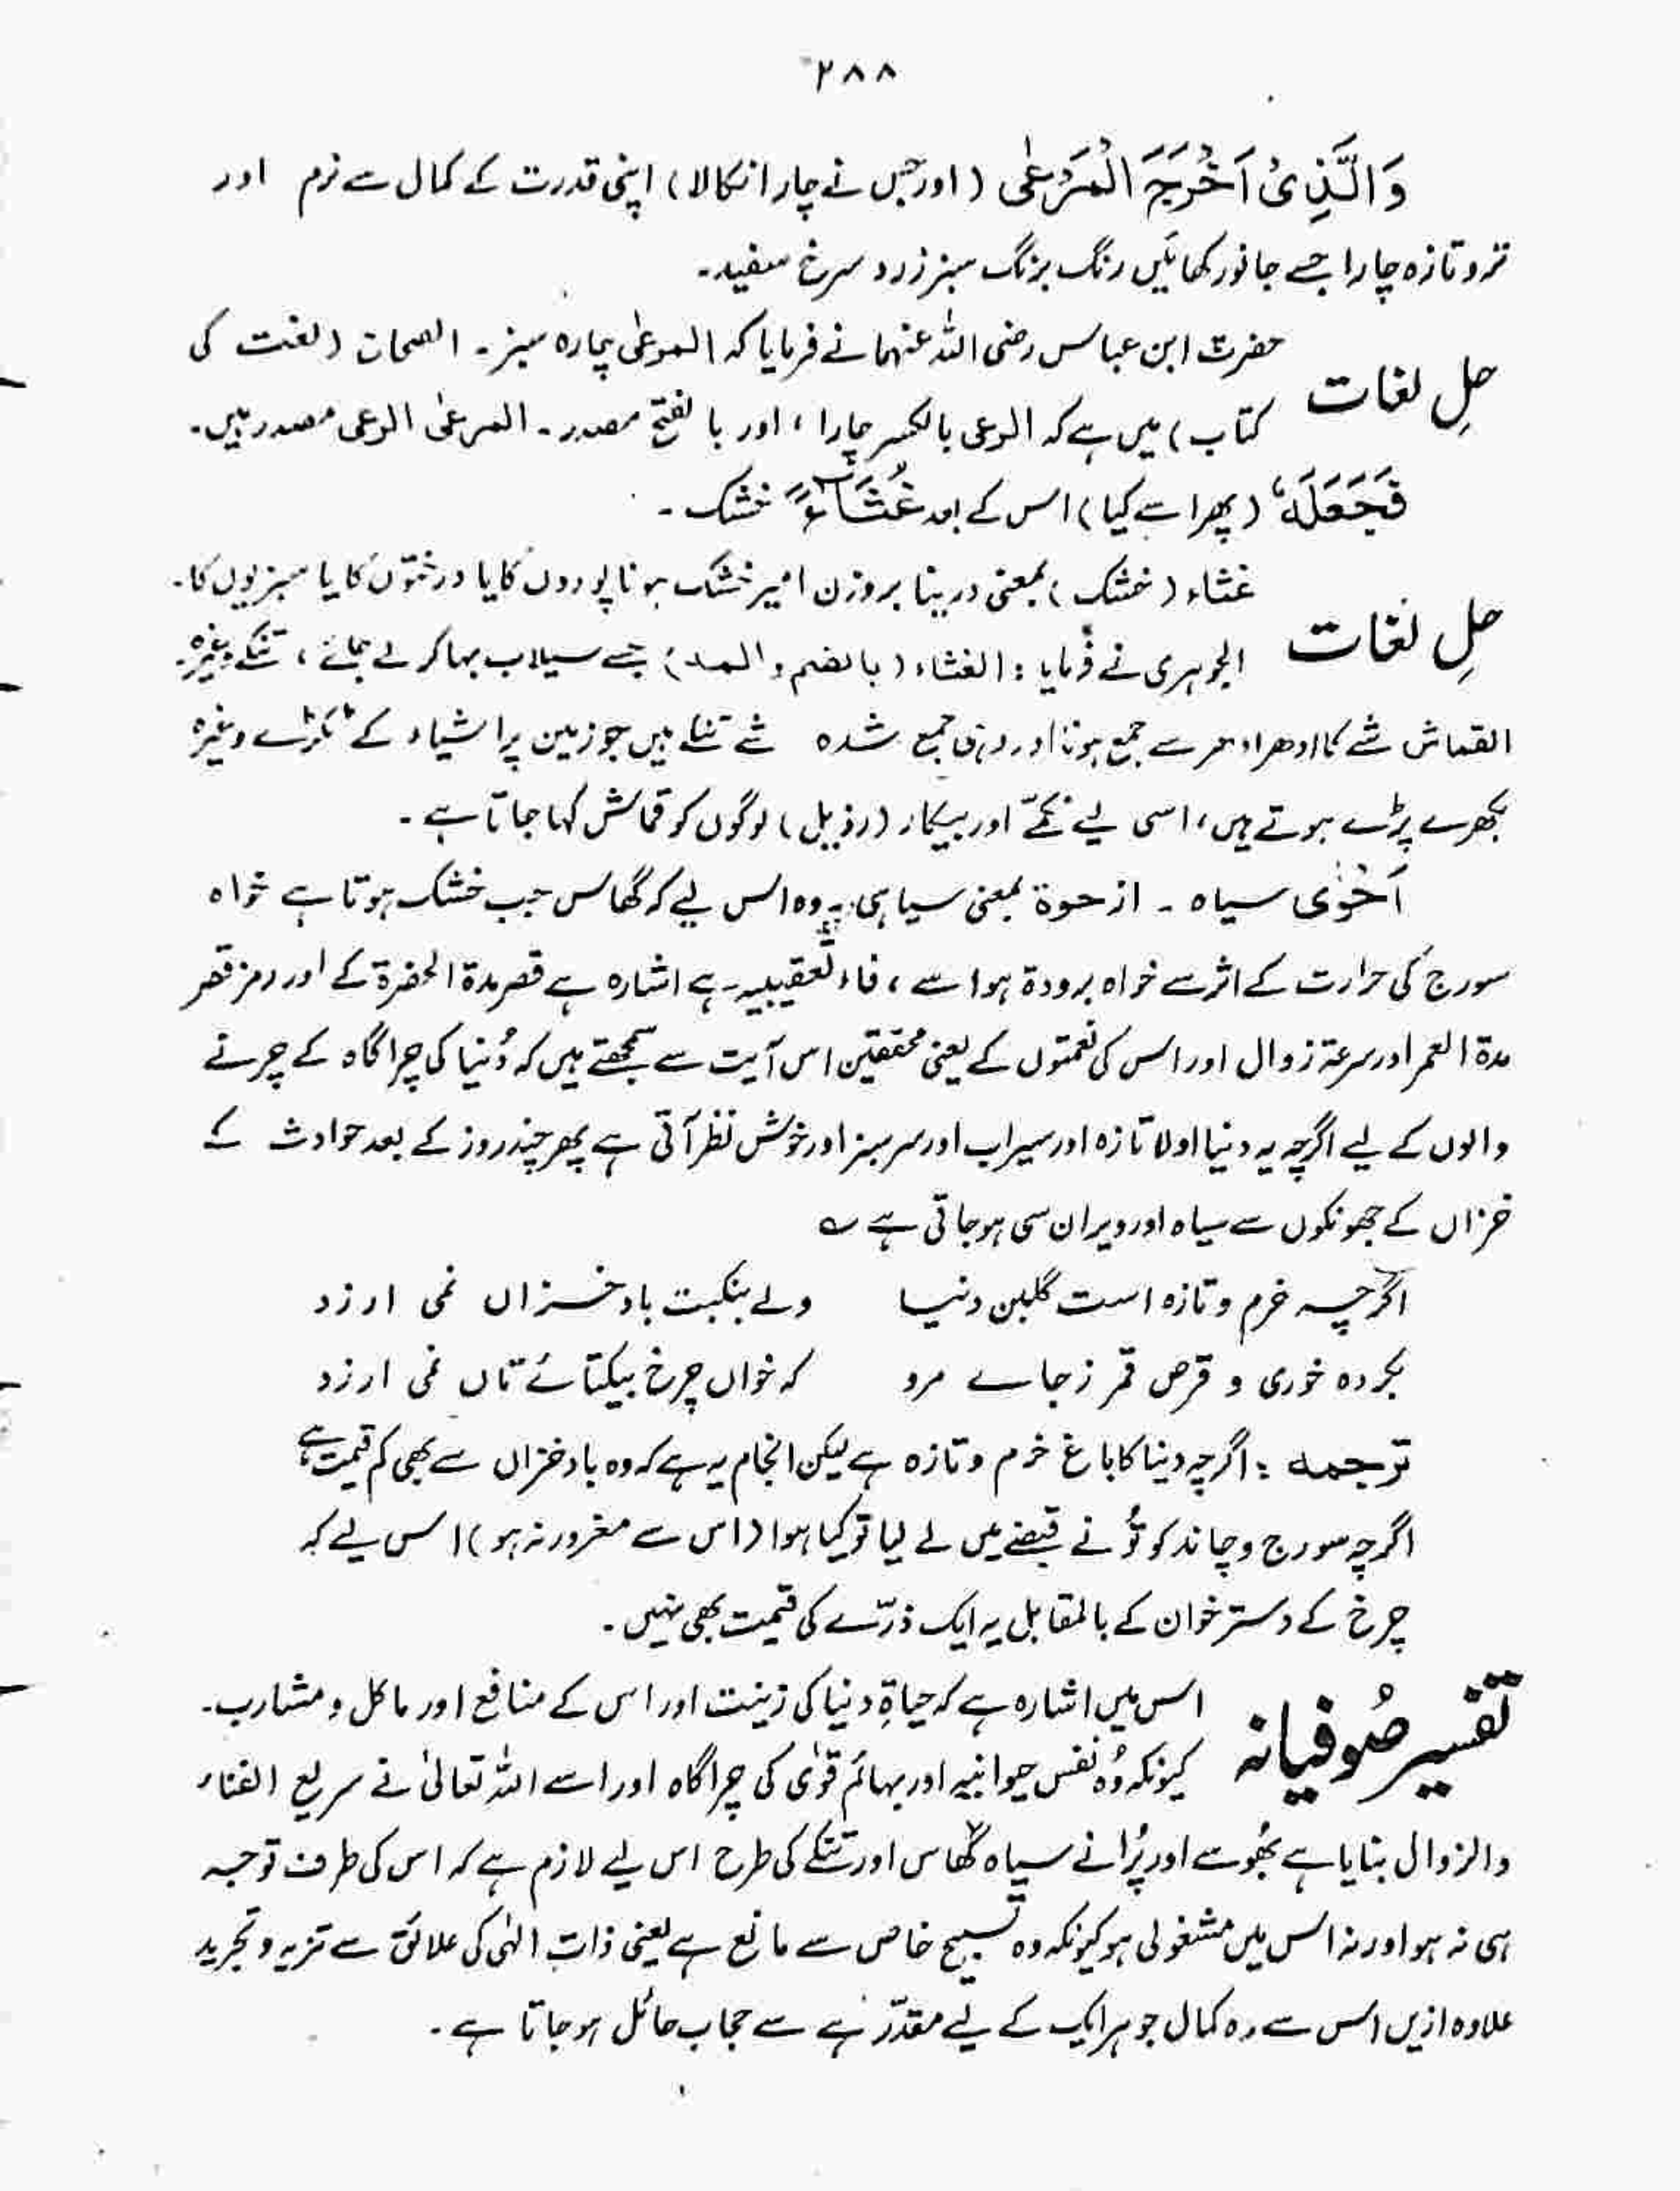 ۲۸۸
وَالَّذِیْ اَخْرَجَ الْمَرْعٰی (اور جس نے چارا نکالا) اپنی قدرت کے کمال سے نرم اور
تروتازہ چارا جسے جانور کھائیں رنگ برنگ سبز زرد سرخ سفید۔
حلِ لغات
حضرت ابن عباس رضی اللہ عنہما نے فرمایا کہ المرعٰی چارہ سبز۔ الصحات (لغت کی
کتاب) میں ہے کہ الرعی بالکسر چارا ، اور بالفتح مصدر۔ المرعٰی الرعی مصدر ہیں۔
فَجَعَلَہٗ (پھر اسے کیا) اس کے بعد غُثَآءً خشک۔
حلِ لغات
غثاء (خشک) بمعنی درینا بروزن امیر خشک ہونا پودوں کا یا درختوں کا یا سبزیوں کا۔
الجوہری نے فرمایا : الغثاء (بالضم والمد) جسے سیلاب بہا کر لے جائے ، تنکے وغیرہ۔
القماش شے کا ادھر ادھر سے جمع ہونا اور وہی جمع شدہ شے تنکے ہیں جو زمین پر اشیاء کے ٹکڑے وغیرہ
بکھرے پڑے ہوتے ہیں ، اسی لیے نکمّے اور بیکار (رذیل) لوگوں کو قماش کہا جاتا ہے۔
اَحْوٰی سیاہ ۔ از حوۃ بمعنی سیاہی یہ وہ اس لیے کہ گھاس جب خشک ہوتا ہے خواہ
سورج کی حرارت کے اثر سے خواہ برودۃ ہوا سے ، فاء تعقیبیہ ہے اشارہ ہے قصر مدۃ الخضرۃ کے اور رمز قصر
مدۃ العمر اور سرعۃ زوال اور اس کی نعمتوں کے یعنی محققین اس آیت سے سمجھتے ہیں کہ دُنیا کی چراگاہ کے چرنے
والوں کے لیے اگرچہ یہ دنیا اولا تازہ اور سیراب اور سرسبز اور خوش نظر آتی ہے پھر چند روز کے بعد حوادث کے
خزاں کے جھونکوں سے سیاہ اور ویران سی ہو جاتی ہے ؎
اگرچہ خرم و تازہ است گلبن دنیا ولے بنکبت باد خزاں نمی ارزد
بکردہ خوری و قرص قمر ز جاے مرو کہ خواں چرخ بیکتائے ناں نمی ارزد
ترجمہ : اگرچہ دنیا کا باغ خرم و تازہ ہے لیکن انجام یہ ہے کہ وہ باد خزاں سے بھی کم قیمت ہے
اگرچہ سورج و چاند کو تُو نے قبضے میں لے لیا تو کیا ہوا (اس سے مغرور نہ ہو) اس لیے کہ
چرخ کے دسترخوان کے بالمقابل یہ ایک ذرّے کی قیمت بھی نہیں۔
تفسیر صُوفیانہ
اس میں اشارہ ہے کہ حیاۃِ دنیا کی زینت اور اس کے منافع اور ماکل و مشارب۔
کیونکہ وُہ نفس حیوانیہ اور بہائم قوٰی کی چراگاہ اور اسے اللہ تعالیٰ نے سریع الفناء
والزوال بنایا ہے بھُوسے اور پُرانے سیاہ گھاس اور تنکے کی طرح اس لیے لازم ہے کہ اس کی طرف توجہ
ہی نہ ہو اور نہ اس میں مشغولی ہو کیونکہ وہ تسبیح خاص سے مانع ہے یعنی ذات الٰہی کی علائق سے تنزیہ و تجرید
علاوہ ازیں اس سے وہ کمال جو ہر ایک کے لیے مقدّر ہے سے حجاب حائل ہو جاتا ہے۔